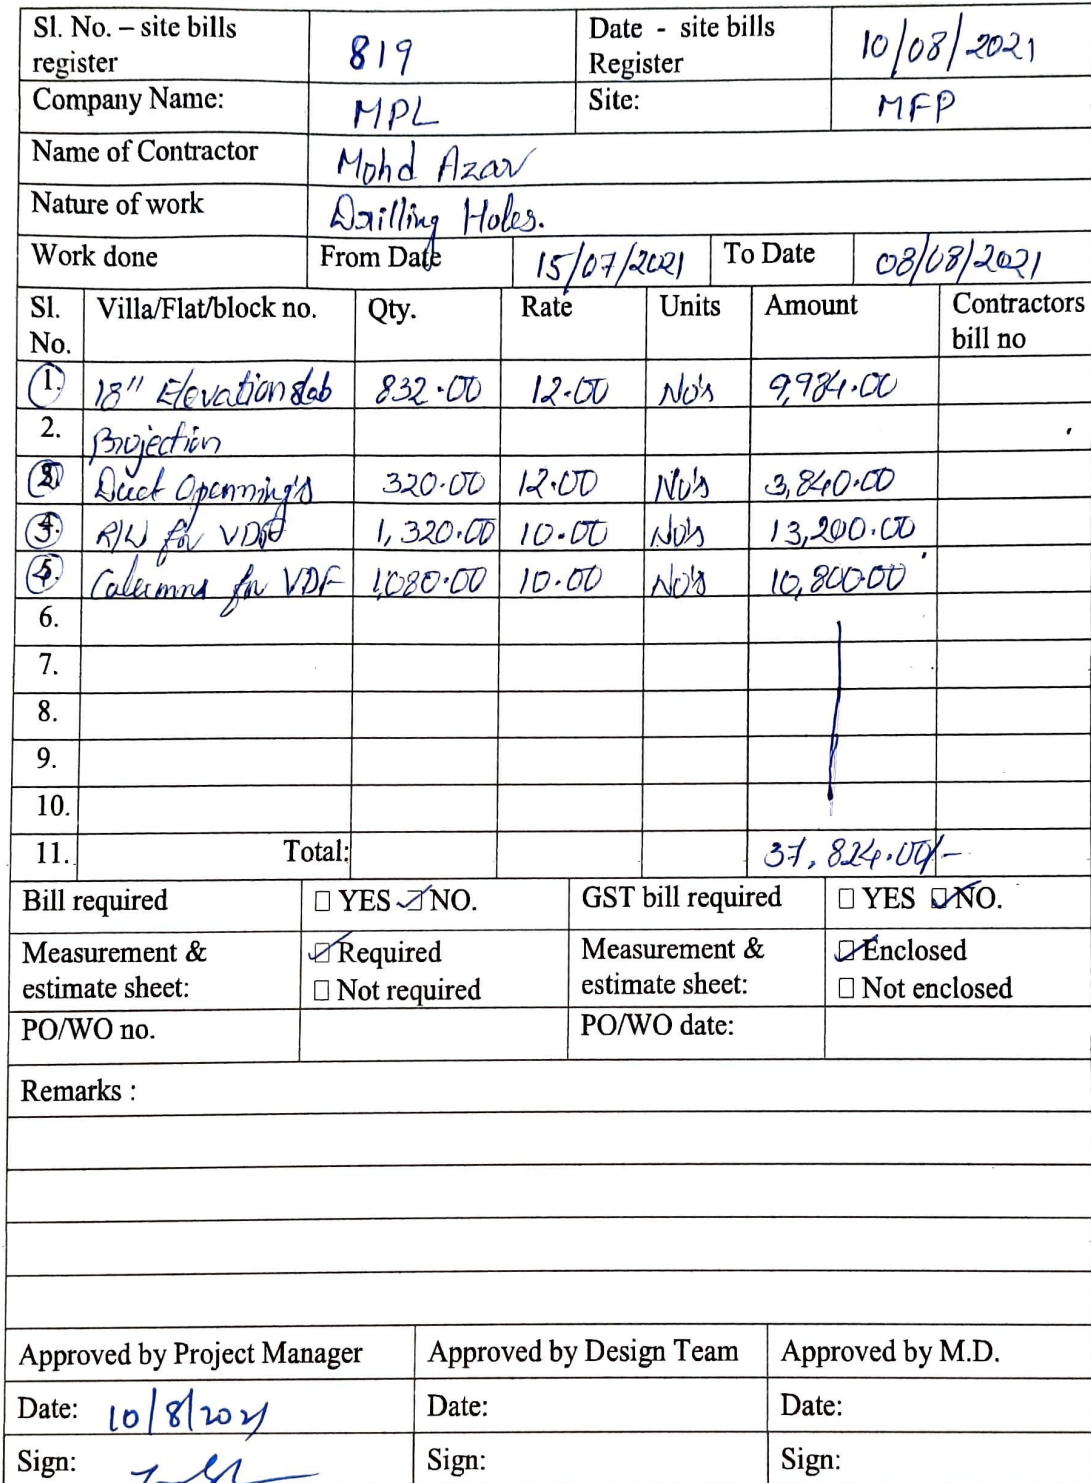 Sl. No. – site bills register 819 Date - site bills Register 10/08/2021
Company Name: MPL Site: MFP
Name of Contractor Mohd Azar
Nature of work Drilling Holes.
Work done From Date 15/07/2021 To Date 08/08/2021
Sl. No. Villa/Flat/block no. Qty. Rate Units Amount Contractors bill no
1. 18" Elevation slab 832.00 12.00 No's 9,984.00
2. Projection
2 Duct Openning's 320.00 12.00 No's 3,840.00
3 R/W for VDF 1,320.00 10.00 No's 13,200.00
4 Calumns for VDF 1,080.00 10.00 No's 10,800.00
6.
7.
8.
9.
10.
11. Total: 37,824.00/-
Bill required □ YES ☑ NO. GST bill required □ YES ☑ NO.
Measurement & estimate sheet: ☑ Required Measurement & estimate sheet: ☑ Enclosed
□ Not required □ Not enclosed
PO/WO no. PO/WO date:
Remarks :
Approved by Project Manager Approved by Design Team Approved by M.D.
Date: 10/8/2021 Date: Date:
Sign: Sign: Sign: